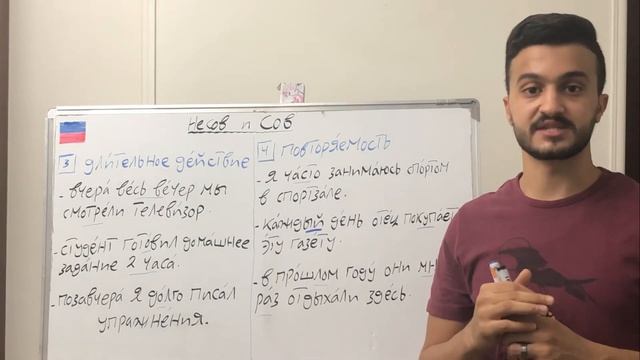 Несов и Сов
3 Длительное действие
- вчера́ ве́сь ве́чер мы
смотре́ли телеви́зор.
- студе́нт гото́вил дома́шнее
зада́ние 2 часа́.
- позавчера́ я до́лго писа́л
упражне́ния.
4 Повторяемость
- я ча́сто занима́юсь спо́ртом
в спортза́ле.
- ка́ждый де́нь оте́ц покупа́ет
э́ту газе́ту.
- в про́шлом году́ они
ра́з отдыха́ли здесь.